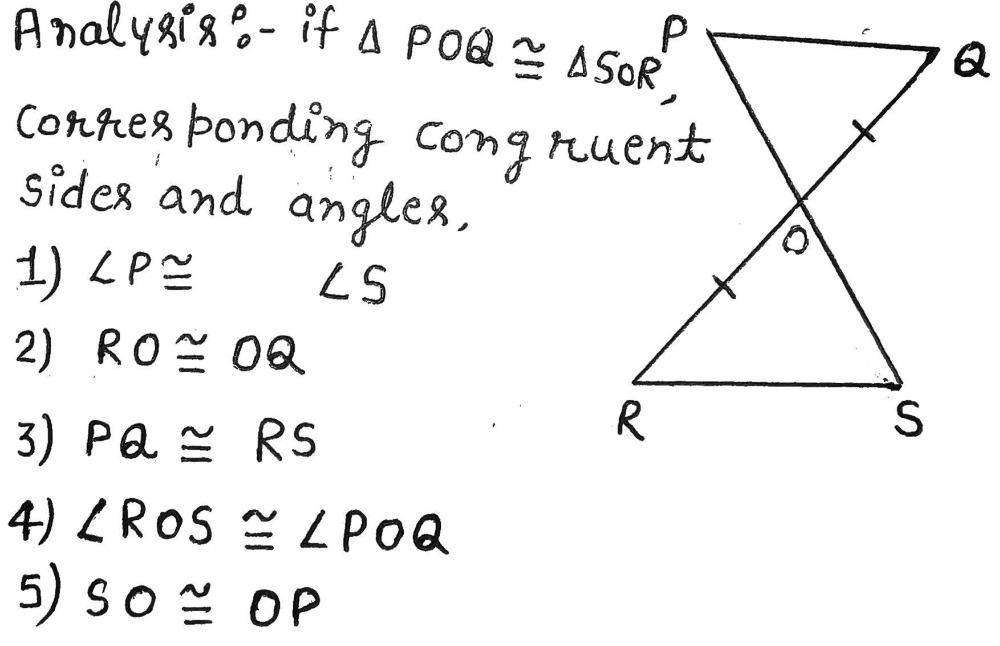 Analysis:- if Δ POQ ≅ ΔSOR,
Corresponding congruent
sides and angles,
1) ∠P ≅ ∠S
2) RO ≅ OQ
3) PQ ≅ RS
4) ∠ROS ≅ ∠POQ
5) SO ≅ OP
P
Q
O
R
S